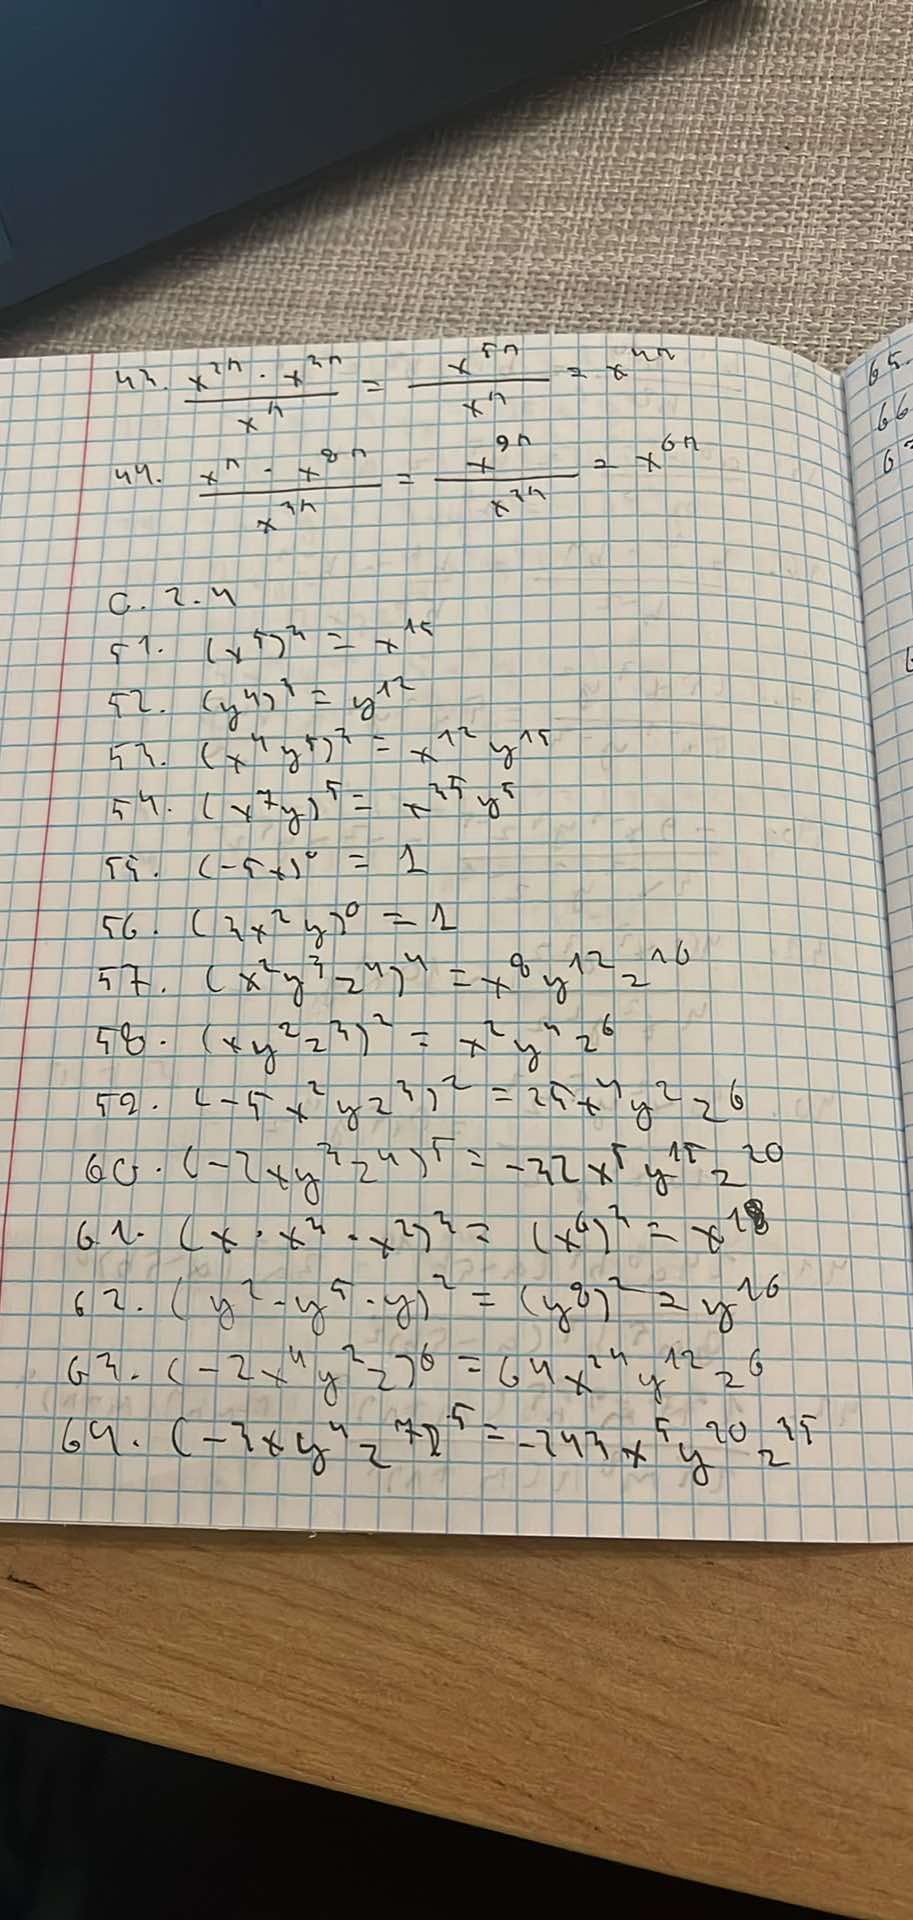 43. (x²ⁿ · x³ⁿ)/xⁿ = x⁵ⁿ/xⁿ = x⁴ⁿ
65.
44. (xⁿ · x⁸ⁿ)/x³ⁿ = x⁹ⁿ/x³ⁿ = x⁶ⁿ
66
C. 2.4
51. (x⁵)³ = x¹⁵
52. (y⁴)³ = y¹²
53. (x⁴y⁵)³ = x¹²y¹⁵
54. (x⁷y)⁵ = x³⁵y⁵
55. (-5x)⁰ = 1
56. (3x²y)⁰ = 1
57. (x²y³z⁴)⁴ = x⁸y¹²z¹⁶
58. (xy²z³)² = x²y⁴z⁶
59. (-5x²yz³)² = 25x⁴y²z⁶
60. (-2xy³z⁴)⁵ = -32x⁵y¹⁵z²⁰
61. (x · x³ · x²)³ = (x⁶)³ = x¹⁸
62. (y² · y⁵ · y)² = (y⁸)² = y¹⁶
63. (-2x⁴y²z)⁶ = 64x²⁴y¹²z⁶
64. (-3xy⁴z⁷)⁵ = -243x⁵y²⁰z³⁵